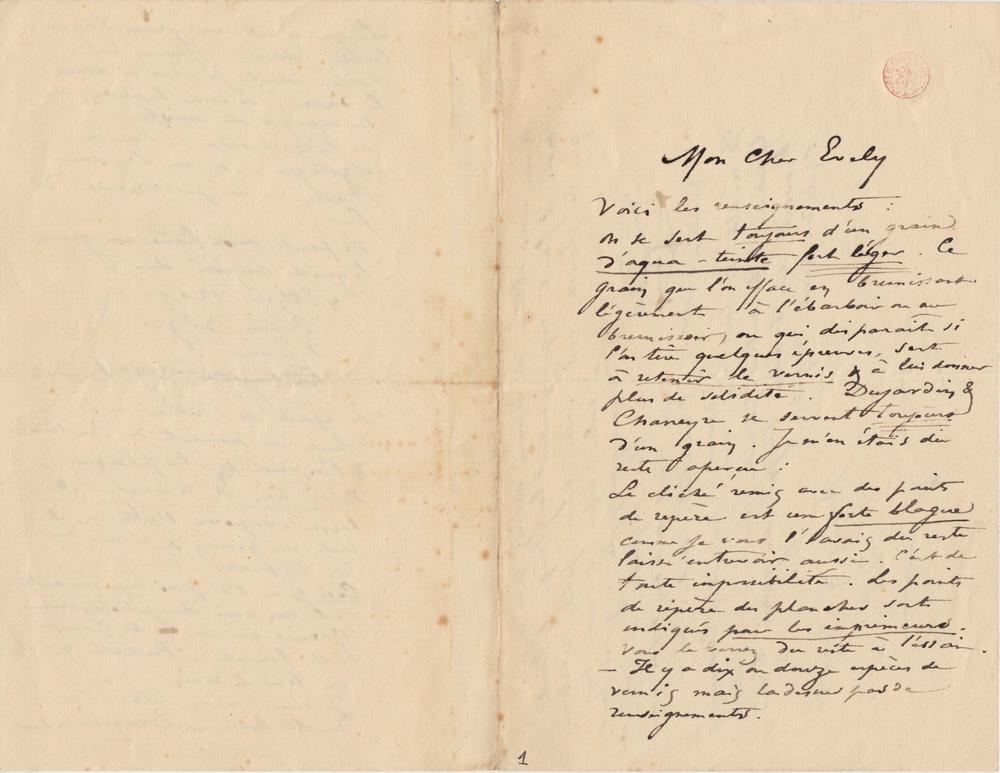 Mon Cher Evely
Voici les renseignements :
on se sert toujours d'un grain
d'aqua-teinte fort léger. Ce
grain que l'on efface en brunissant
légèrement à l'ébarboir ou au
brunissoir, ou qui disparait si
l'on tire quelques épreuves, sert
à retenir le vernis & à lui donner
plus de solidité. Dujardin &
Chareyre se servent toujours
d'un grain. Je m'en étais du
reste aperçu :
Le cliché remis avec des points
de repère est une forte blague
comme je vous l'avais du reste
laissé entrevoir aussi. C'est de
toute impossibilité. Les points
de repère des planches sont
indiqués pour les imprimeurs.
Vous le verrez du reste à l'essai.
— Il y a dix ou douze espèces de
vernis mais là dessus pas de
renseignements.
1